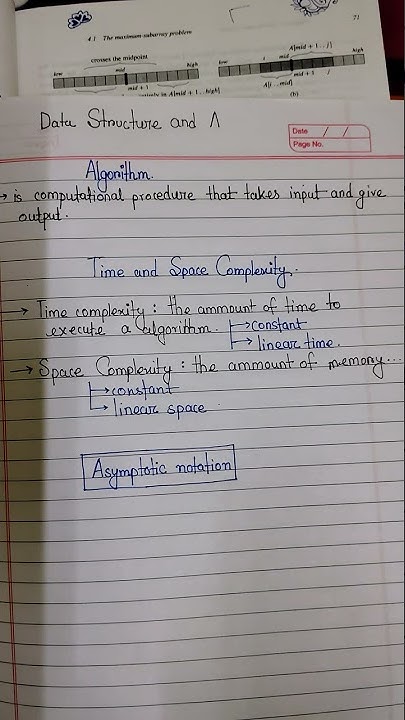 4.1 The maximum-subarray problem
71
crosses the midpoint
low
mid
high
mid + 1
A[mid + 1 . . j]
low
i
mid
high
mid + 1
j
A[i . . mid]
(b)
Data Structure and A
Date / /
Page No.
Algorithm.
→ is computational procedure that takes input and give
output.
Time and Space Complexity.
→ Time complexity : the ammount of time to
execute a algorithm. → constant
→ linear time.
→ Space Complexity : the ammount of memory...
→ constant
→ linear space
Asymptotic notation